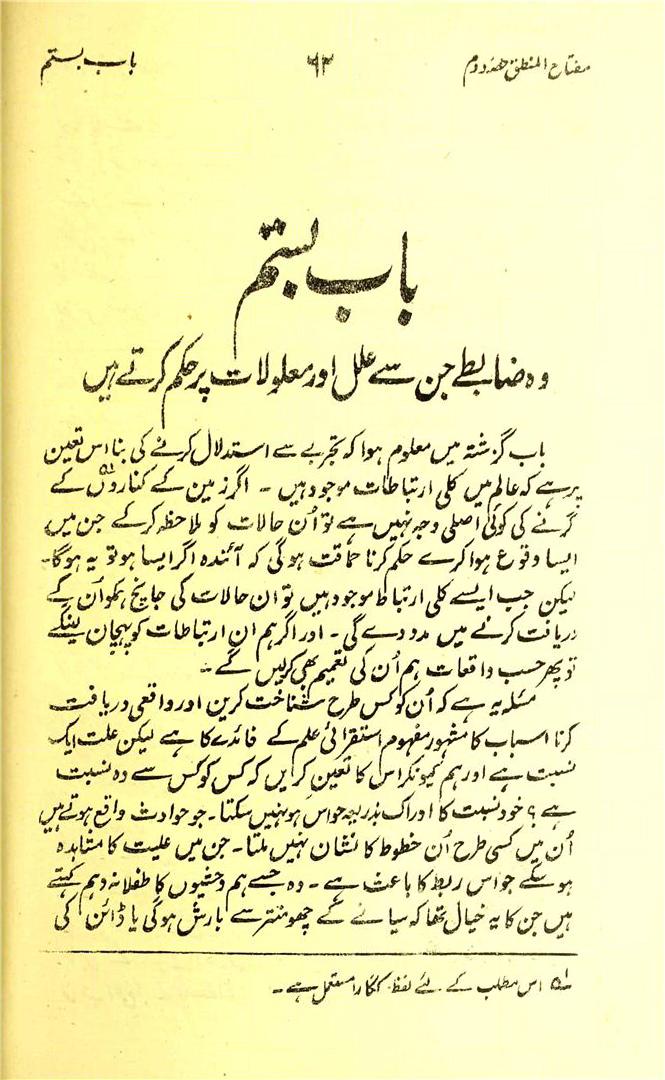 مفتاح المنطق حصۂ دوم ۹۳ باب بستم
باب بستم
وہ ضابطے جن سے علل اور معلولات پر حکم کرتے ہیں
باب گزشتہ میں معلوم ہوا کہ تجربے سے استدلال کرنے کی بنا اس تعین
پر ہے کہ عالم میں کلی ارتباطات موجود ہیں ۔ اگر زمین کے کناروں۵۱ کے
گرنے کی کوئی اصلی وجہ نہیں ہے تو اُن حالات کو ملاحظہ کرکے جن میں
ایسا وقوع ہوا کرے حکم کرنا حماقت ہوگی کہ آئندہ اگر ایسا ہو تو یہ ہوگا۔
لیکن جب ایسے کلی ارتباط موجود ہیں تو ان حالات کی جانچ ہمکو اُن کے
دریافت کرنے میں مدد دے گی ۔ اور اگر ہم ان ارتباطات کو پہچان لینگے
تو پھر حسب واقعات ہم اُن کی تعمیم بھی کرلیں گے ۔
مسئلہ یہ ہے کہ اُن کو کس طرح شناخت کریں اور واقعی دریافت
کرنا اسباب کا مشہور مفہوم استقرائی علم کے فائدے کا ہے لیکن علت ایک
نسبت ہے اور ہم کیونکر اس کا تعین کرایں کہ کس کو کس سے وہ نسبت
ہے ؟ خود نسبت کا ادراک بذریعہ حواس ہو نہیں سکتا ۔ جو حوادث واقع ہوتے ہیں
اُن میں کسی طرح اُن خطوط کا نشان نہیں ملتا ۔ جن میں علیت کا مشاہدہ
ہوسکے جو اس ربط کا باعث ہے ۔ وہ جسے ہم وحشیوں کا طفلانہ وہم کہتے
ہیں جن کا یہ خیال تھا کہ سیانے کے چھو منتر سے بارش ہوگی یا ڈائن کی
۵۱ اس مطلب کے لئے لفظ کگارا مستعمل ہے ۔